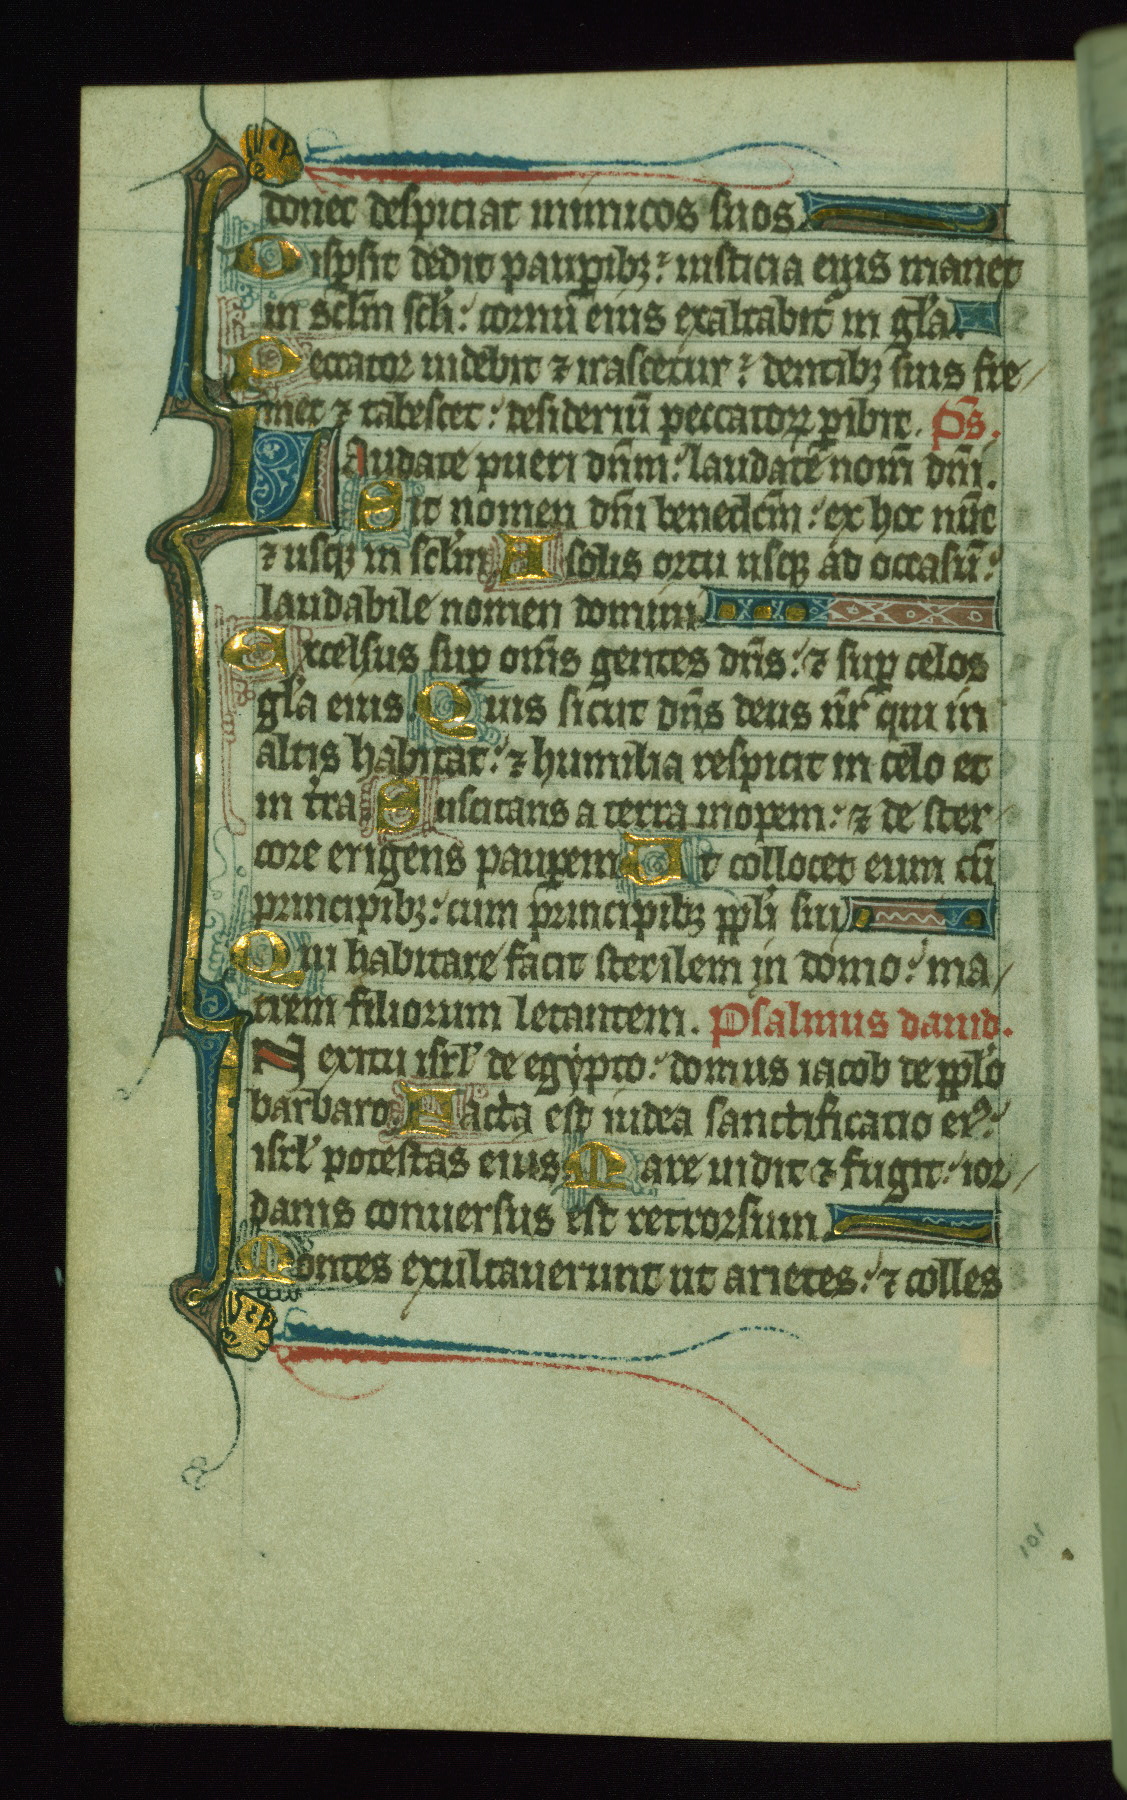 donec despiciat inimicos suos.
Dispsit dedit paupibꝫ: iusticia eius manet
in sclm̄ scli: cornu eius exaltabit̄ in gl̄a.
Peccator uidebit ⁊ irascetur: dentibꝫ suis fre/
met ⁊ tabescet: desideriū peccatoꝝ ꝑibit. Ps̄.
Laudate pueri dn̄m: laudate nom̄ dn̄i.
Sit nomen dn̄i benedictm̄: ex hoc nūc
⁊ usqꝫ in sclm̄ A solis ortu usqꝫ ad occasū:
laudabile nomen domini.
Excelsus suꝑ om̄s gentes dn̄s: ⁊ suꝑ celos
gl̄a eius. Quis sicut dn̄s deus nr̄ qui in
altis habitat: ⁊ humilia respicit in celo et
in tr̄a Suscitans a terra inopem: ⁊ de ster
core erigens pauꝑem Ut collocet eum cū
principibꝫ: cum principibꝫ ppl̄i sui
Qui habitare facit sterilem in domo: ma/
trem filiorum letantem. Psalmus dauid.
IN exitu isrl̄ de egypto: domus iacob de ppl̄o
barbaro Facta est iudea sanctificatio eiꝰ:
isrl̄ potestas eius Mare uidit ⁊ fugit: ior/
danis conuersus est retrorsum.
Montes exultauerunt ut arietes: ⁊ colles
101